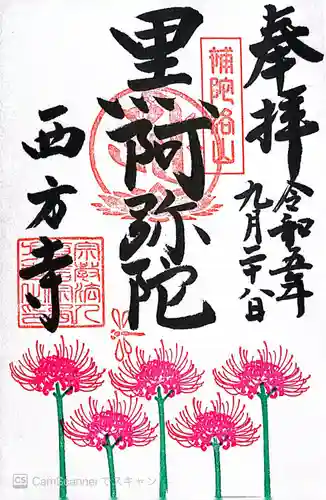 奉拝
令和五年
九月二十八日
補陀洛山
黒阿弥陀
西方寺
CS CamScannerでスキャン